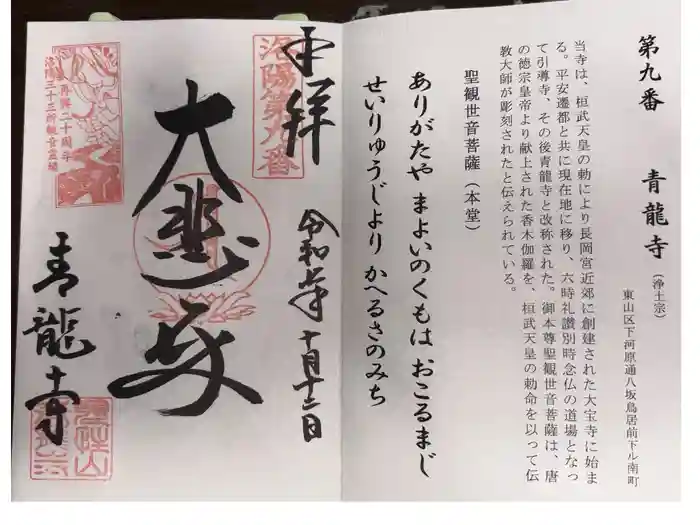 第九番 青龍寺（浄土宗）
東山区下河原通八坂鳥居前下ル南町
当寺は、桓武天皇の勅により長岡宮近郊に創建された大宝寺に始ま
る。平安遷都と共に現在地に移り、六時礼讃別時念仏の道場となっ
て引導寺、その後青龍寺と改称された。御本尊聖観世音菩薩は、唐
の徳宗皇帝より献上された香木伽羅を、桓武天皇の勅命を以って伝
教大師が彫刻されたと伝えられている。
聖観世音菩薩（本堂）
ありがたや まよいのくもは おこるまじ
せいりゅうじより かへるさのみち
奉拝
洛陽第九番
令和 年 十月十二日
大悲
再興二十周年
洛陽三十三所観音霊場
青龍寺